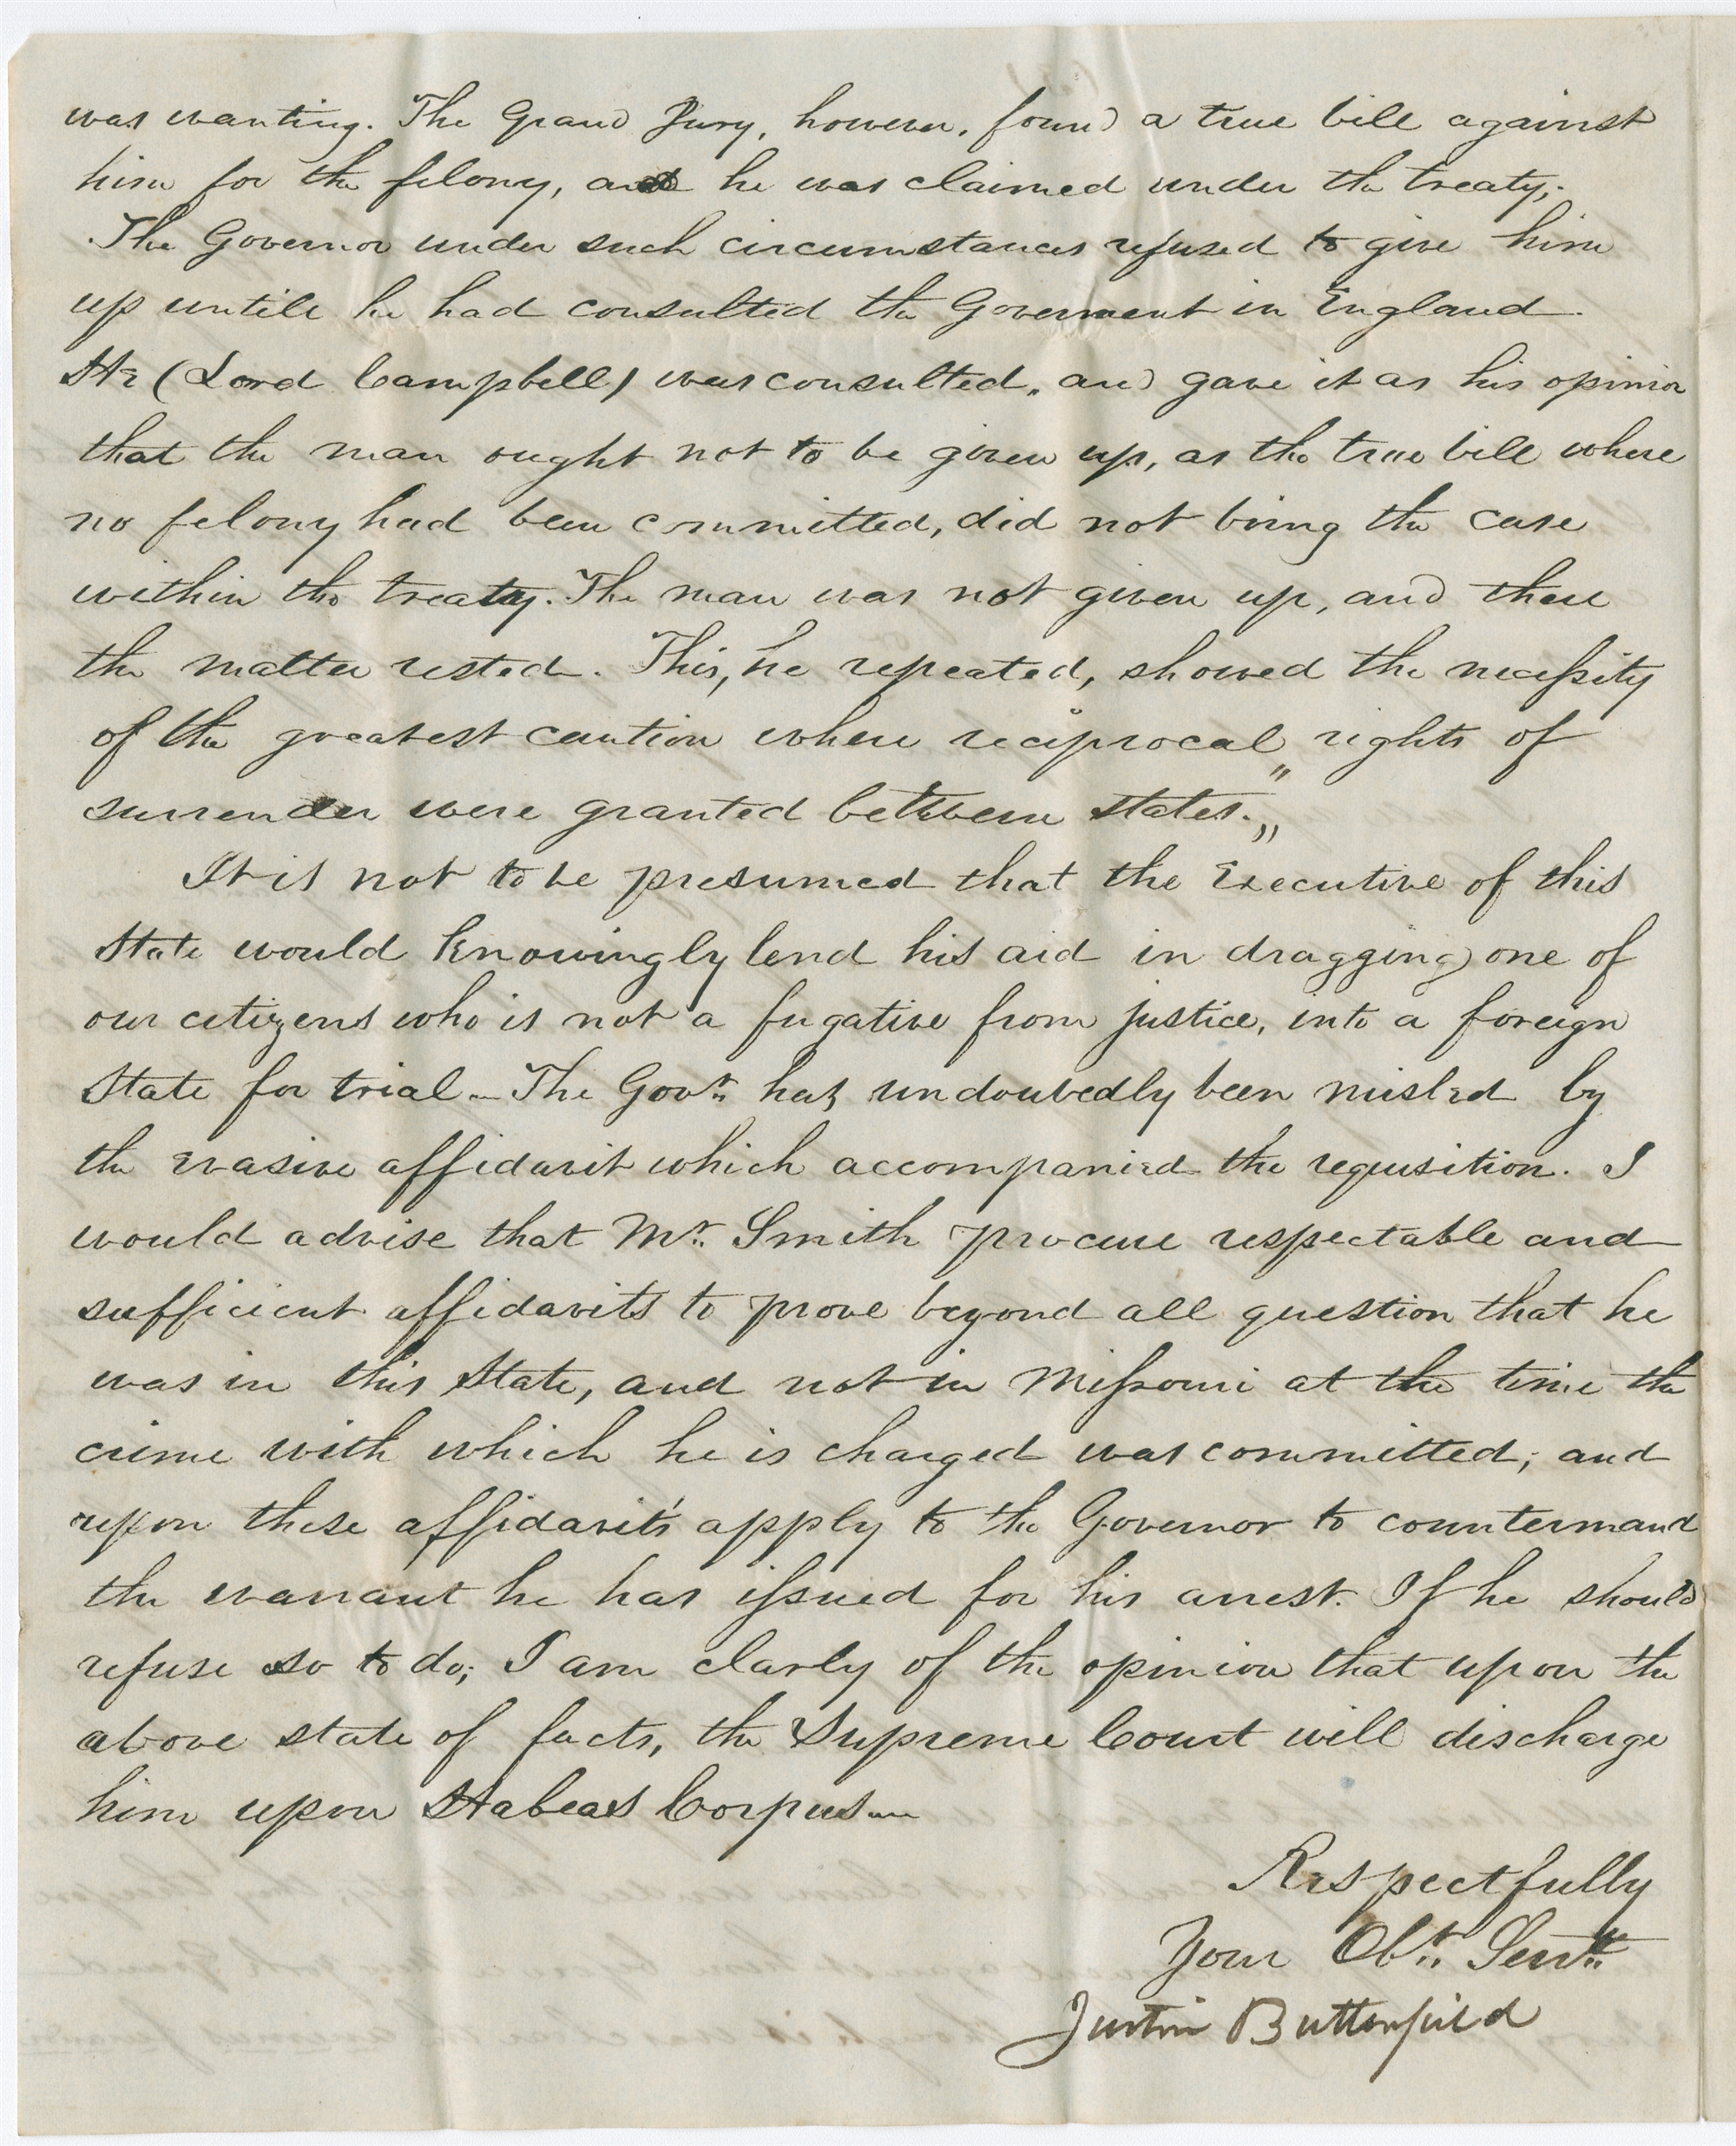 was wanting. The Grand Jury, however, found a true bill against
him for the felony, and he was claimed under the treaty;
The Governor under such circumstances refused to give him
up untill he had consulted the Goverment in England.
He (Lord Campbell) was consulted, and gave it as his opinion
that the man ought not to be given up, as the true bill where
no felony had been committed, did not bring the case
within the treaty. The man was not given up, and there
the matter rested. This, he repeated, showed the necessity
of the greatest caution where reciprocal rights of
surrender were granted between states."
It is not to be presumed that the Executive of this
State would knowingly lend his aid in dragging one of
our citizens who is not a fugative from justice, into a foreign
State for trial— The Govr. has undoubedly been misled by
the evasive affidavit which accompanied the requisition. I
would advise that Mr. Smith procure respectable and
sufficient affidavits to prove beyond all question that he
was in this State, and not in Missouri at the time the
crime with which he is charged was committed; and
upon these affidavits apply to the Governor to countermand
the warrant he has issued for his arrest. If he should
refuse so to do; I am clarly of the opinion that upon the
above state of facts, the Supreme Court will discharge
him upon Habeas Corpus—
Respectfully
Your Obt. Servt.
Justin Butterfield